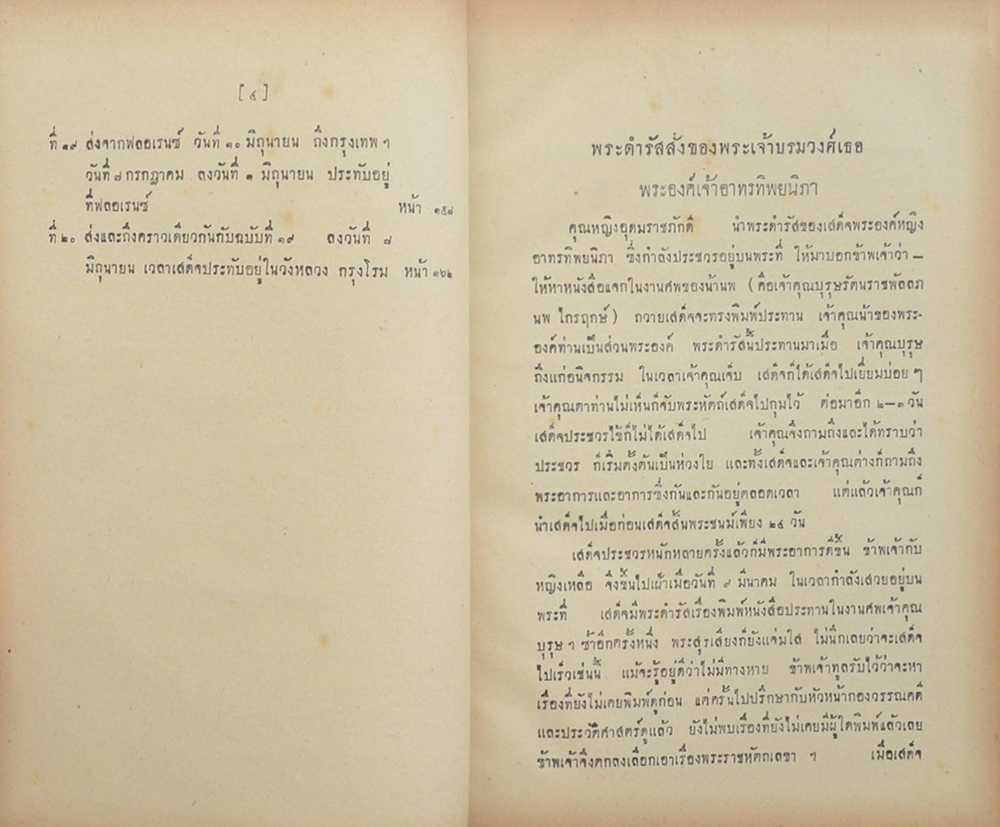 [ ๔ ]
ที่ ๑๙ ส่งจากฟลอเรนซ์ วันที่ ๑๐ มิถุนายน ถึงกรุงเทพ ฯ
วันที่ ๘ กรกฎาคม ลงวันที่ ๑ มิถุนายน ประทับอยู่
ที่ฟลอเรนซ์ หน้า ๑๕๘
ที่ ๒๐ ส่งและถึงคราวเดียวกันกับฉบับที่ ๑๙ ลงวันที่ ๘
มิถุนายน เวลาเสด็จประทับอยู่ในวังหลวง กรุงโรม หน้า ๑๖๒
พระดำรัสสั่งของพระเจ้าบรมวงศ์เธอ
พระองค์เจ้าอาทรทิพยนิภา
คุณหญิงอุดมราชภักดี นำพระดำรัสของเสด็จพระองค์หญิง
อาทรทิพยนิภา ซึ่งกำลังประชวรอยู่บนพระที่ ให้มาบอกข้าพเจ้าว่า —
ให้หาหนังสือแจกในงานศพของน้านพ (คือเจ้าคุณบุรุษรัตนราชพัลลภ
นพ ไกรฤกษ์) ถวายเสด็จจะทรงพิมพ์ประทาน เจ้าคุณน้าของพระ-
องค์ท่านเป็นส่วนพระองค์ พระดำรัสนี้ประทานมาเมื่อ เจ้าคุณบุรุษ
ถึงแก่อนิจกรรม ในเวลาเจ้าคุณเจ็บ เสด็จก็ได้เสด็จไปเยี่ยมบ่อย ๆ
เจ้าคุณตาท่านไม่เห็นก็จับพระหัตถ์เสด็จไปกุมไว้ ต่อมาอีก ๒—๓ วัน
เสด็จประชวรไข้ก็ไม่ได้เสด็จไป เจ้าคุณจึงถามถึงและได้ทราบว่า
ประชวร ก็เริ่มตั้งต้นเป็นห่วงใย และทั้งเสด็จและเจ้าคุณต่างก็ถามถึง
พระอาการและอาการซึ่งกันและกันอยู่ตลอดเวลา แต่แล้วเจ้าคุณก็
นำเสด็จไปเมื่อก่อนเสด็จสิ้นพระชนม์เพียง ๒๔ วัน
เสด็จประชวรหนักหลายครั้งแล้วก็มีพระอาการดีขึ้น ข้าพเจ้ากับ
หญิงเหลือ จึงขึ้นไปเฝ้าเมื่อวันที่ ๙ มีนาคม ในเวลากำลังเสวยอยู่บน
พระที่ เสด็จมีพระดำรัสเรื่องพิมพ์หนังสือประทานในงานศพเจ้าคุณ
บุรุษ ฯ ซ้ำอีกครั้งหนึ่ง พระสุรเสียงก็ยังแจ่มใส ไม่นึกเลยว่าจะเสด็จ
ไปเร็วเช่นนี้ แม้จะรู้อยู่ดีว่าไม่มีทางหาย ข้าพเจ้าทูลรับไว้ว่าจะหา
เรื่องที่ยังไม่เคยพิมพ์ดูก่อน แต่ครั้นไปปรึกษากับหัวหน้ากองวรรณคดี
และประวัติศาสตร์ดูแล้ว ยังไม่พบเรื่องที่ยังไม่เคยมีผู้ใดพิมพ์แล้วเลย
ข้าพเจ้าจึงตกลงเลือกเอาเรื่องพระราชหัตถเลขา ฯ เมื่อเสด็จ